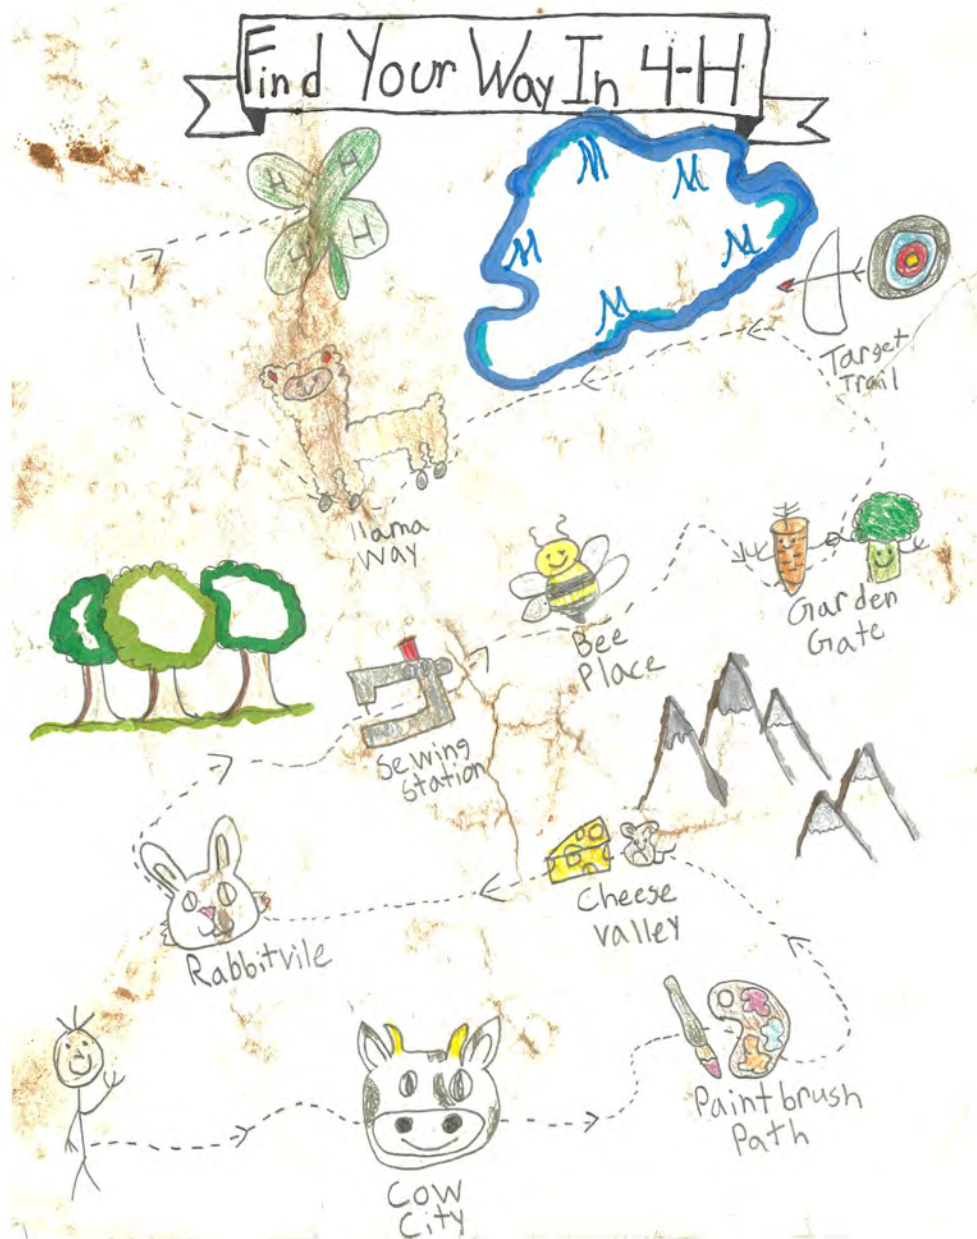 Find Your Way In 4-H
H
H
H
H
Target
Trail
llama
Way
Garden
Gate
Bee
Place
Sewing
Station
Cheese
valley
Rabbitvile
Paintbrush
Path
Cow
City